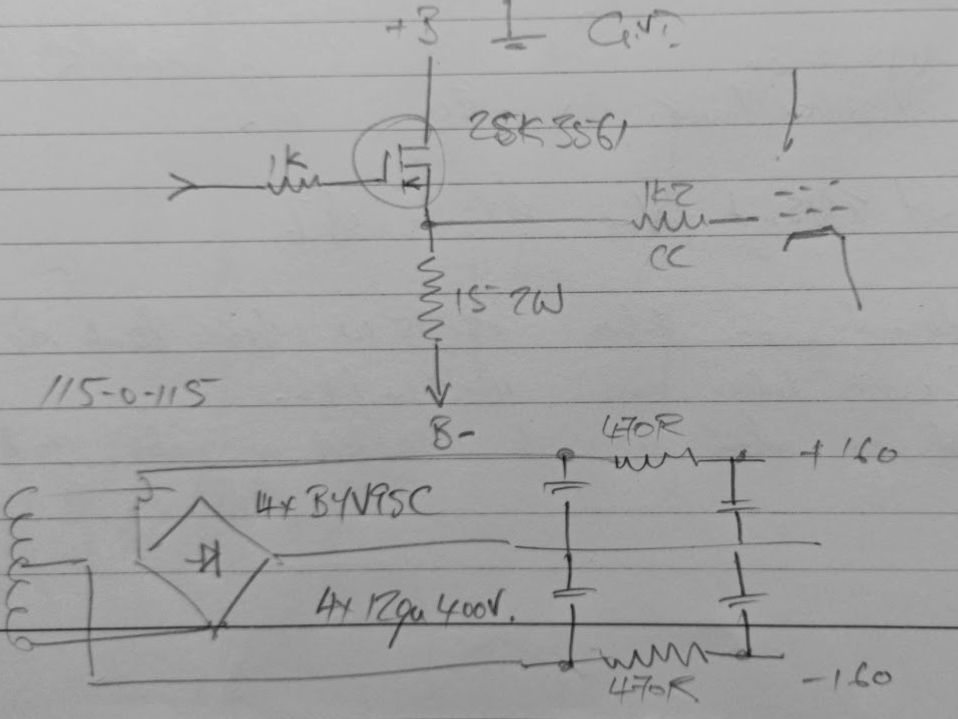 +B
2SK3561
1K
1K2
CC
15 2W
115-0-115
B-
470R
+160
4x BYV95C
4x 120u 400V.
470R
-160